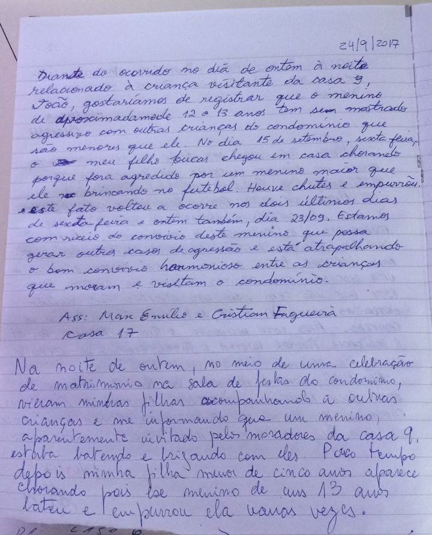 24/9/2017
Diante do ocorrido no dia de ontem à noite
relacionado à criança visitante da casa 9,
João, gostaríamos de registrar que o menino
de aproximadamode 12 a 13 anos tem se mostrado
agressivo com outras crianças do condomínio que
são menores que ele. No dia 15 de setembro, sexta-feira,
o meu filho Lucas chegou em casa chorando
porque fora agredido por um menino maior que
ele brincando no futebol. Houve chutes e empurrões
este fato voltou a ocorre nos dois últimos dias
de sexta-feira e ontem também, dia 23/09. Estamos
com receio do convívio deste menino que possa
gerar outros casos de agressão e está atrapalhando
o bom convívio harmonioso entre as crianças
que moram e visitam o condomínio.
Ass: Max Emilio e Cristian
Casa 17
Na noite de outem, no meio de uma celebração
de matrimonio na sala de festas do condominio,
vieram minhas filhas acompanhando a outras
crianças e me informando que um menino,
aparentemente invitado pelos moradores da casa 9,
estava batendo e brigando com eles Poco tempo
depois minha filha menor de cinco anos aparece
chorando pois ese menino de uns 13 anos
bateu e empurrou ela varias vezes.